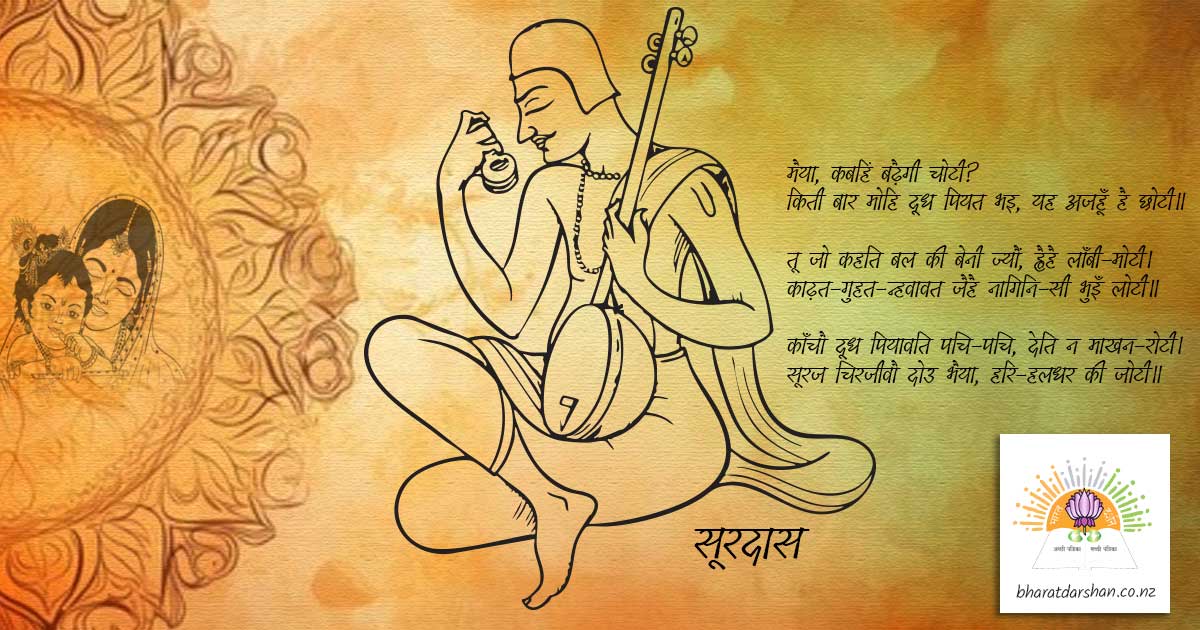 मैया, कबहिं बढ़ैगी चोटी?
किती बार मोहि दूध पियत भइ, यह अजहूँ है छोटी॥
तू जो कहति बल की बेनी ज्यौं, ह्वैहै लाँबी-मोटी।
काढ़त-गुहत-न्हवावत जैहै नागिनि-सी भुइँ लोटी॥
काँचौ दूध पियावति पचि-पचि, देति न माखन-रोटी।
सूरज चिरजीवौ दोउ भैया, हरि-हलधर की जोटी॥
सूरदास
भारत दर्शन
अच्छी पत्रिका सच्ची पत्रिका
bharatdarshan.co.nz